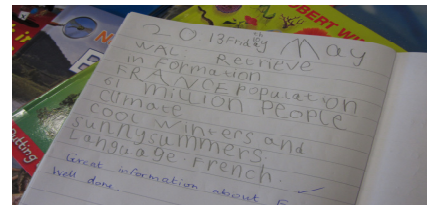 OBERT WI
20 13 Friday May
WAL: Retrieve
information
FRANCE Population
61 million People
Climate
cool winters and
sunny summers.
Language: French.
Great information about F
Well done.
utting